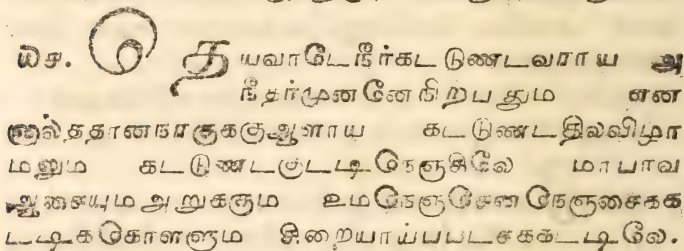 ய௪. தெ யவாடேநீர்கட டுணடவராய அ
நீதர்முனனேநிற்ப தும என
னுல்ததானநரகுககுஆளாய கட டுணட திலவிழா
மலும கட டுணடகுடடி நெஞ்சிலே மாபாவ
ஆசையும அறுகஞும உம நெஞ்சைகக
ட டிககொளளும சிறையாய்பபட சகக ட டிலே.